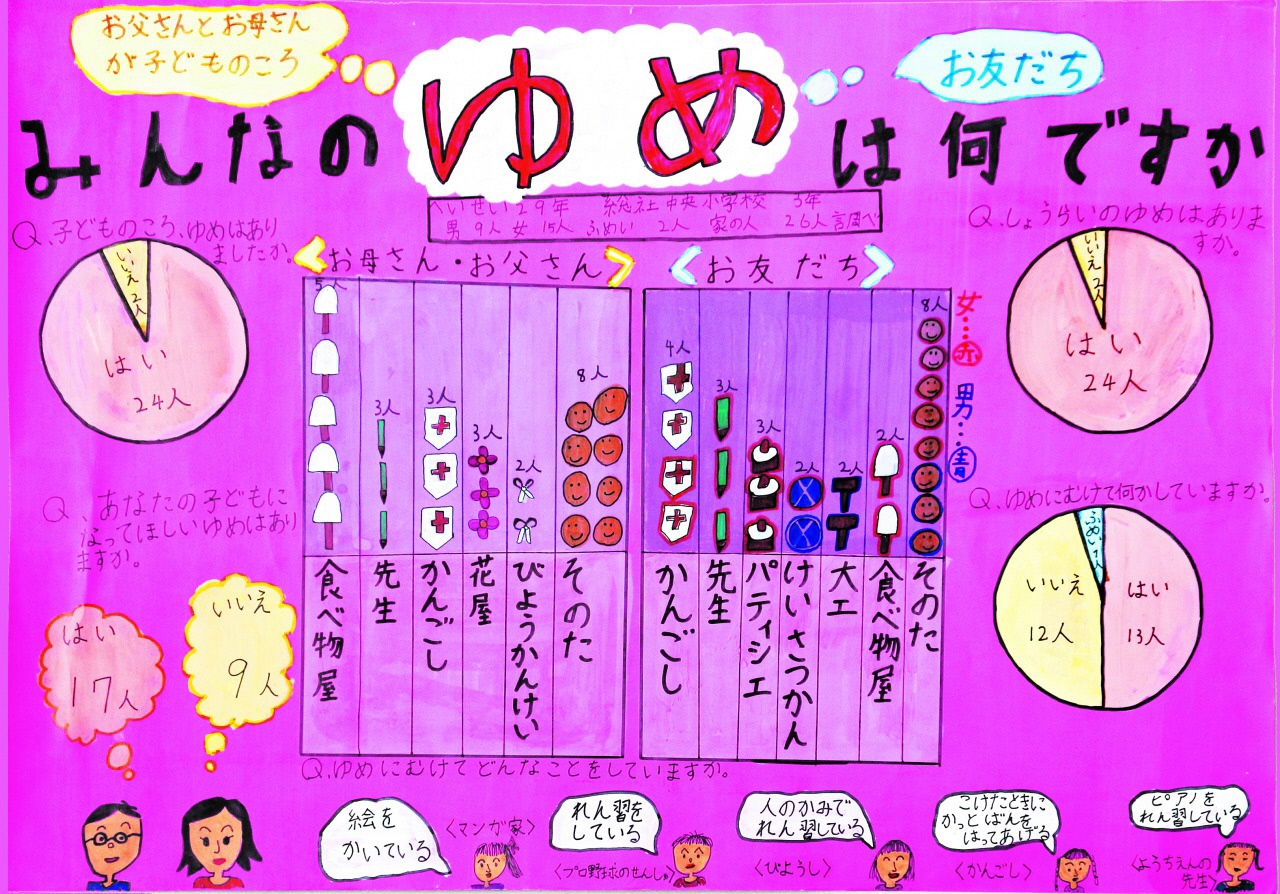 お父さんとお母さん
が子どものころ
お友だち
みんなのゆめは何ですか
へいせい29年 総社中央小学校 3年
男 9人 女 15人 ふめい 2人 家の人 26人 言周べ
Q.子どものころ、ゆめはあり
ましたか。
いいえ2人
はい
24人
Q.あなたの子どもに
なってほしいゆめはあり
ますか。
はい
17人
いいえ
9人
お母さん・お父さん
5人
3人
3人
3人
2人
8人
食べ物屋
先生
かんごし
花屋
びようかんけい
そのた
お友だち
4人
3人
3人
2人
2人
2人
8人
かんごし
先生
パティシエ
けいさつかん
大工
食べ物屋
そのた
女…赤
男…青
Q.しょうらいのゆめはありま
すか。
いいえ2人
はい
24人
Q.ゆめにむけて何かしていますか。
ふめい1人
いいえ
12人
はい
13人
Q.ゆめにむけてどんなことをしていますか。
絵を
かいている
<マンガ家>
れん習を
している
<プロ野球のせんしゅ>
人のかみで
れん習している
<びようし>
こけたときに
かっとばんを
はってあげる
<かんごし>
ピアノを
れん習している
<ようちえんの
先生>